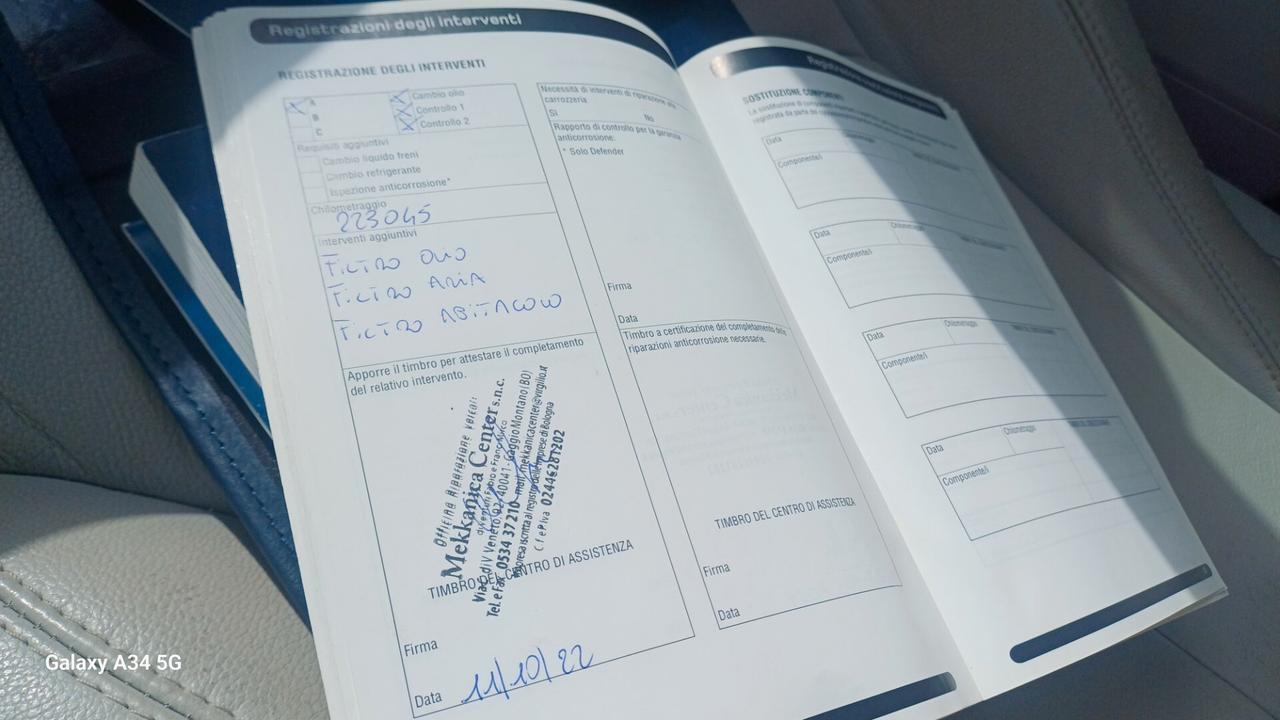 Registrazioni degli interventi
REGISTRAZIONE DEGLI INTERVENTI
A
B
C
Cambio olio
Controllo 1
Controllo 2
Requisiti aggiuntivi
Cambio liquido freni
Cambio refrigerante
Ispezione anticorrosione*
Chilometraggio
223045
Interventi aggiuntivi
FILTRO OLIO
FILTRO ARIA
FILTRO ABITACOLO
Apporre il timbro per attestare il completamento
del relativo intervento.
Officina Riparazione Veicoli
Mekkanica Center s.n.c.
Via di V Veneto
40041 - Gaggio Montano (BO)
Tel. e Fax 0534 37210 - mail: mekkanicacenter@virgilio.it
Impresa iscritta al registro delle imprese di Bologna
C f e P iva 02446281202
TIMBRO DEL CENTRO DI ASSISTENZA
Firma
Data 11/10/22
Necessità di interventi di riparazione alla
carrozzeria
Sì No
Rapporto di controllo per la garanzia
anticorrosione:
* Solo Defender
Firma
Data
Timbro a certificazione del completamento delle
riparazioni anticorrosione necessarie.
TIMBRO DEL CENTRO DI ASSISTENZA
Firma
Data
SOSTITUZIONE COMPONENTI
La sostituzione di componenti
registrata da parte del
Data
Componente/i
Data Chilometraggio
Componente/i
Data Chilometraggio
Componente/i
Data Chilometraggio
Componente/i
Galaxy A34 5G